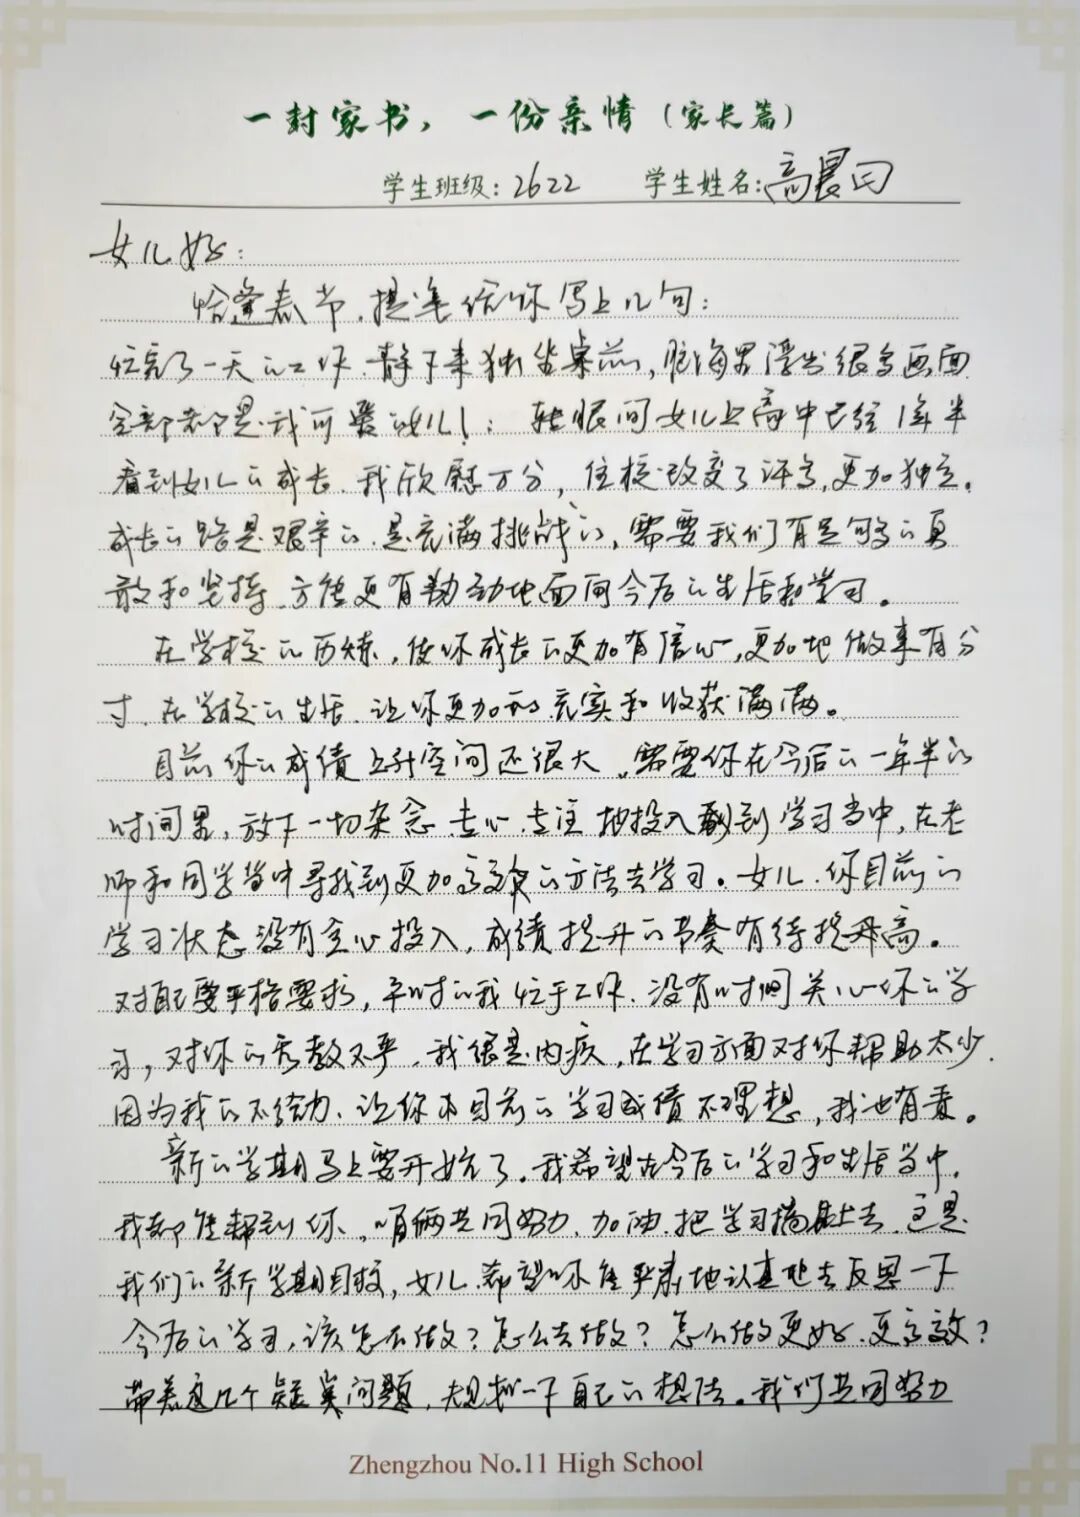 一封家书，一份亲情（家长篇）
学生班级：2622 学生姓名：高晨曰
女儿好：
恰逢春节，提笔给你写上几句：
忙完了一天的工作，静下来独坐桌前，脑海里浮出很多画面
全部都是我可爱的女儿！：转眼间女儿上高中已经1年半
看到女儿的成长，我欣慰万分，住校改变了许多，更加独立。
成长的路是艰辛的，是充满挑战的，需要我们有足够的勇
敢和坚持，方能更有动地面向今后的生活和学习。
在学校的历练，使你成长的更加有信心，更加地做事有分
寸，在学校的生活，让你更加的充实和收获满满。
目前你的成绩上升空间还很大，需要你在今后的一年半的
时间里，放下一切杂念，专心、专注地投入到学习当中，在老
师和同学当中寻找到更加高效的方法去学习。女儿，你目前的
学习状态没有全心投入，成绩提升的节奏有待提高。
对自己要严格要求，平时的我忙于工作，没有时间关心你的学
习，对你的管教不严，我很是内疚，在学习方面对你帮助太少，
因为我的不给力，让你目前的学习成绩不理想，我也有责。
新的学期马上要开始了，我希望在今后的学习和生活当中，
我都能帮到你，咱俩共同努力，加油，把学习搞上去，这是
我们的新学期目标，女儿，希望你能严肃地认真地去反思一下
今后的学习，该怎么做？怎么去做？怎么做更好、更高效？
带着这几个疑问题，规划一下自己的想法。我们共同努力
Zhengzhou No.11 High School